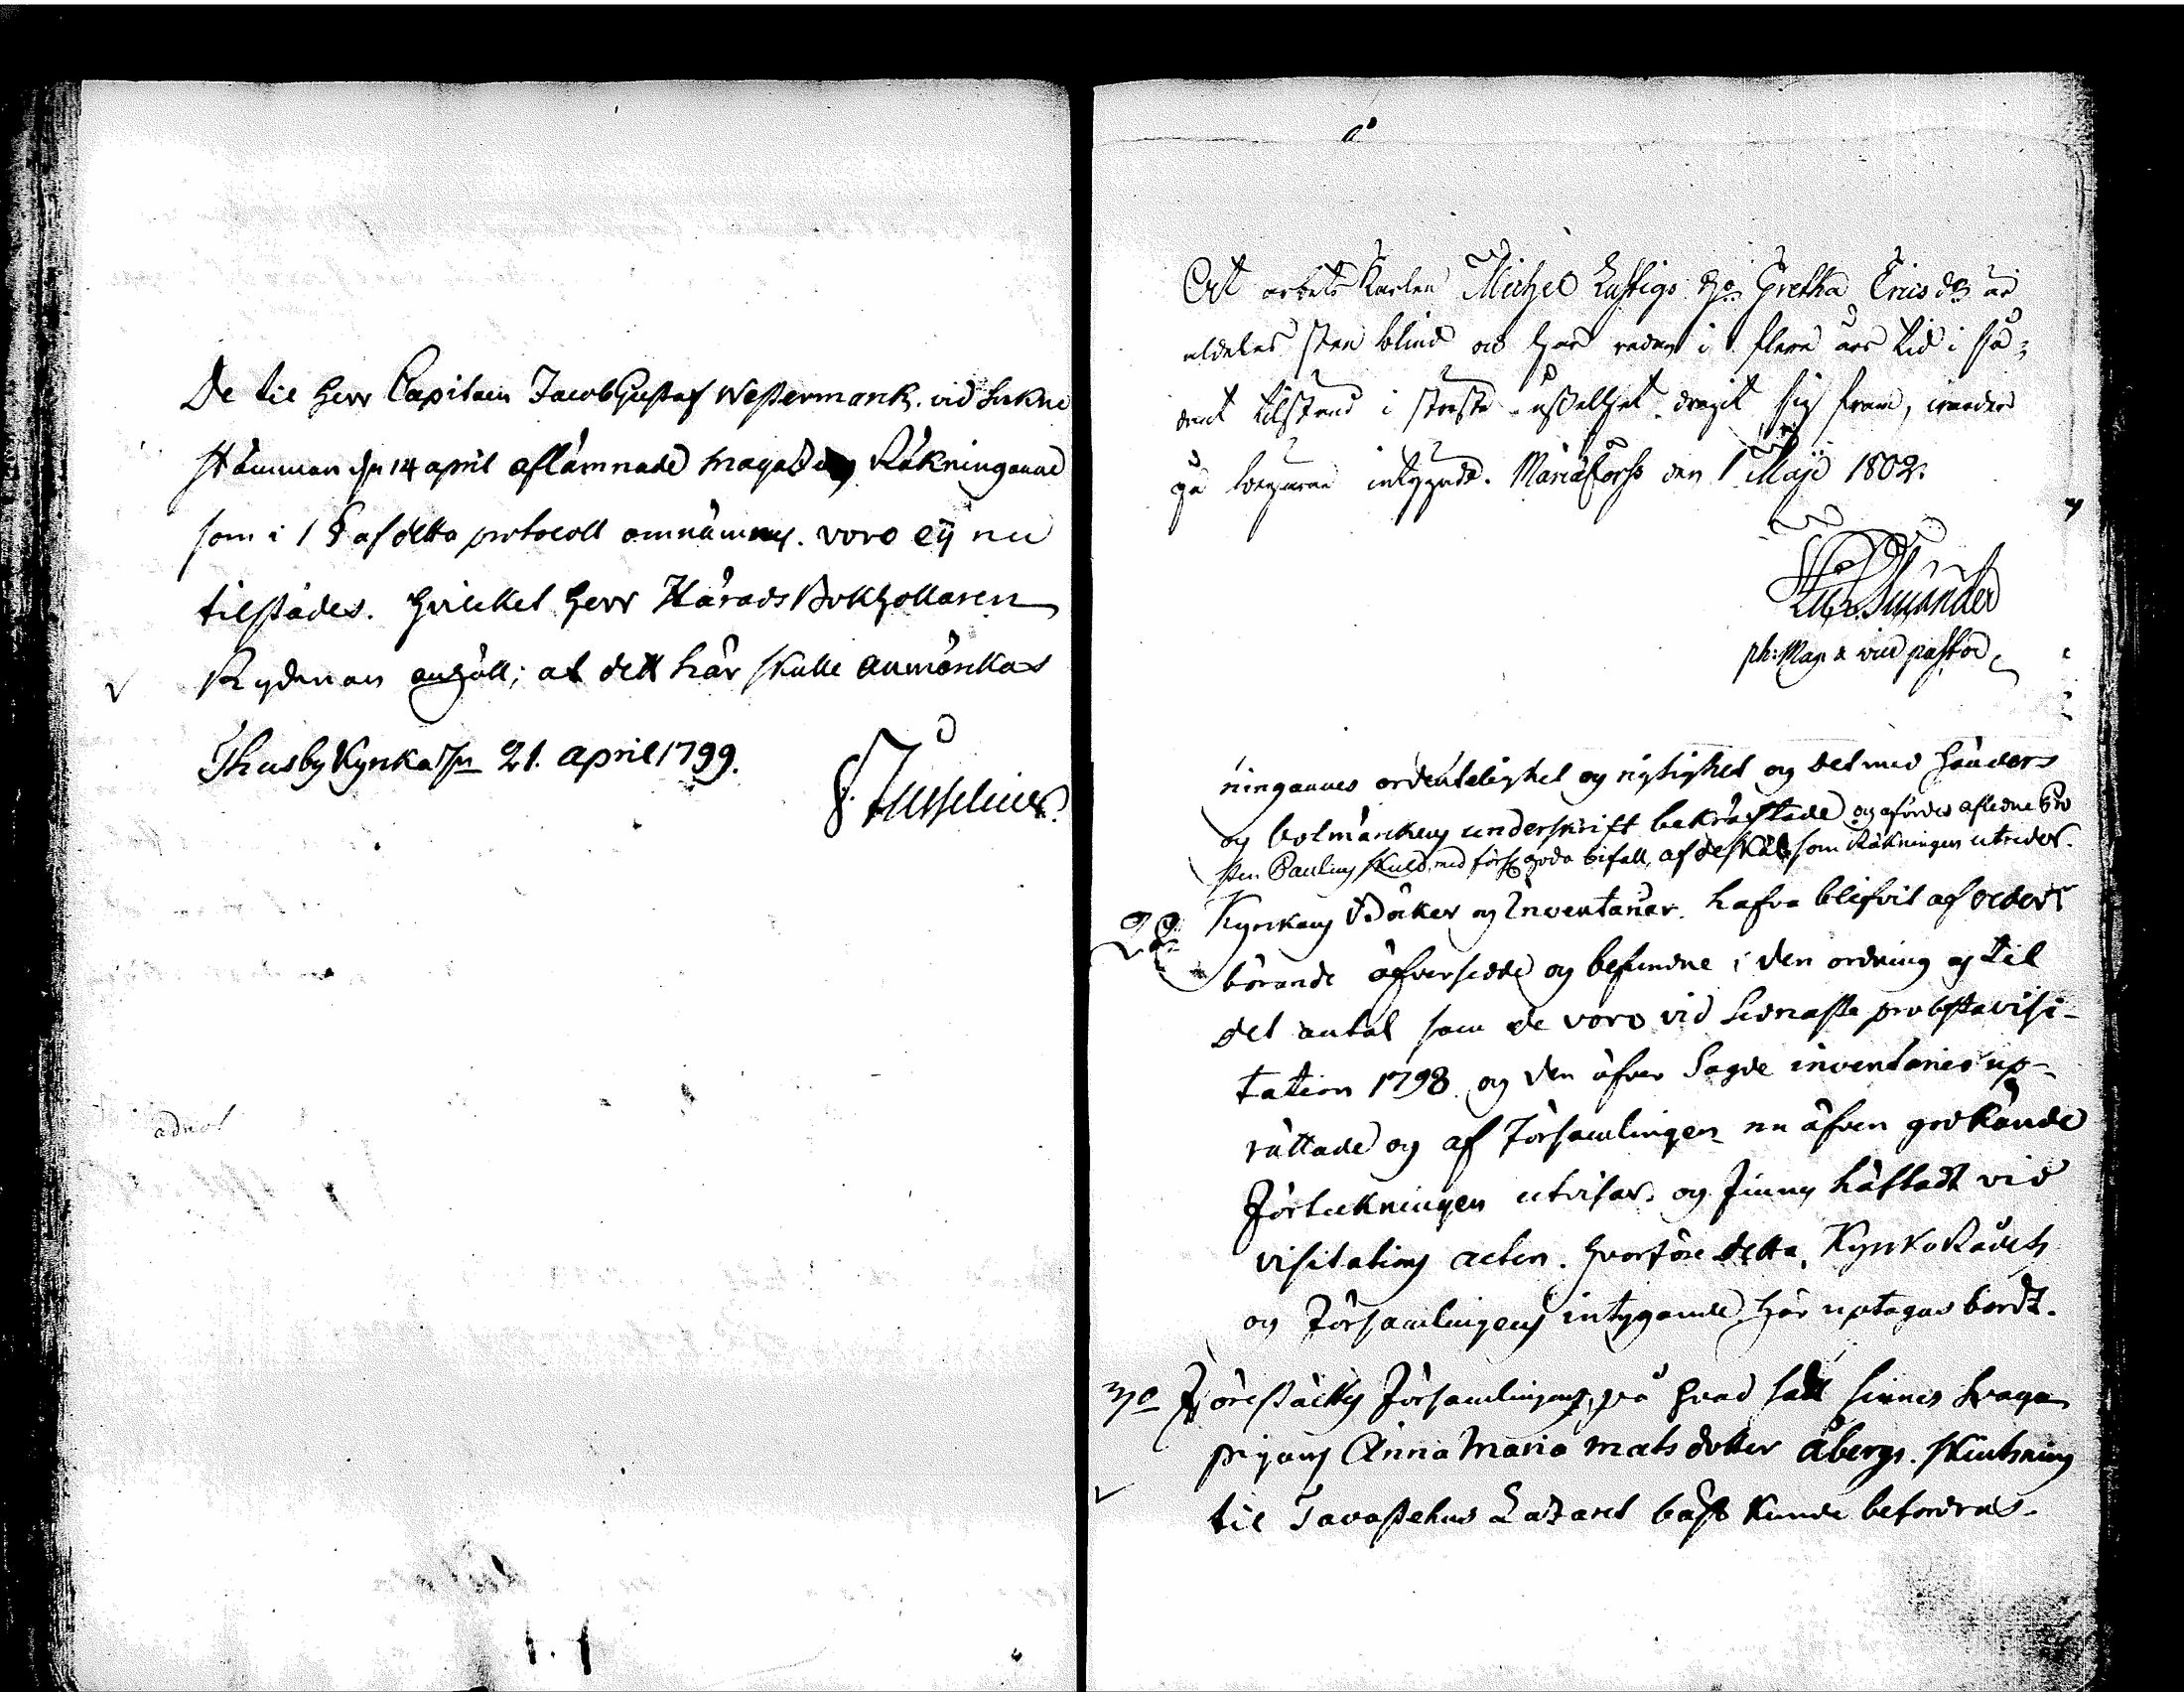 De til Herr Capitain Jacob Gustaf Westermark. vid Sokne
stämman dn 14 april aflämnade magasins Räkningarne
som i 1 § af detta protocoll omnämnes. voro eij nu
tilstädes. hvilket Herr Härads Bokhollaren
Rydman anhöll; at dett här skulle anmärckas
Thusby Kyrka dn 21. april 1799.
adnot
At arbets Karlen Michel Lustigs h:o Gretha Ericsdr är
aldeles sten blind och har redan i flera års tid i så-
dant tilstånd i största uselhet dragit sig fram, warder
på begäran intygadt. Mariæfors den 1 Maji 1802.
ph: Mag. & vice pastor
ningarnes ordentelighet og rigtighet og det med händers
og bolmärckens underskrift bekräftade og afördes aflidne
Paulins skuld, med förs. goda bifall, af de skäl som Räkningen utreder.
22 Kyrkans Böcker og Inventarier. hafva blifvit af veder-
börande öfversedde og befundne i den ordning og til
det antal som de voro vid sidnasta probstavisi-
tation 1798 og den öfver Sagde inventarier up-
rättade og af Församlingen nu äfven godkände
Förteckningen utvisar. og finnes häftadt vid
visitations acten. hvarföre detta, KyrkoRådets
og Församlingens intygande här uptagas bordt.
3o Föreställtes Församlingen, på hvad sätt sinnes svaga
pigans Anna Maria mats dotter Åbergs. skiutsning
til Tavastehus Lazaret bäst kunde befordras.